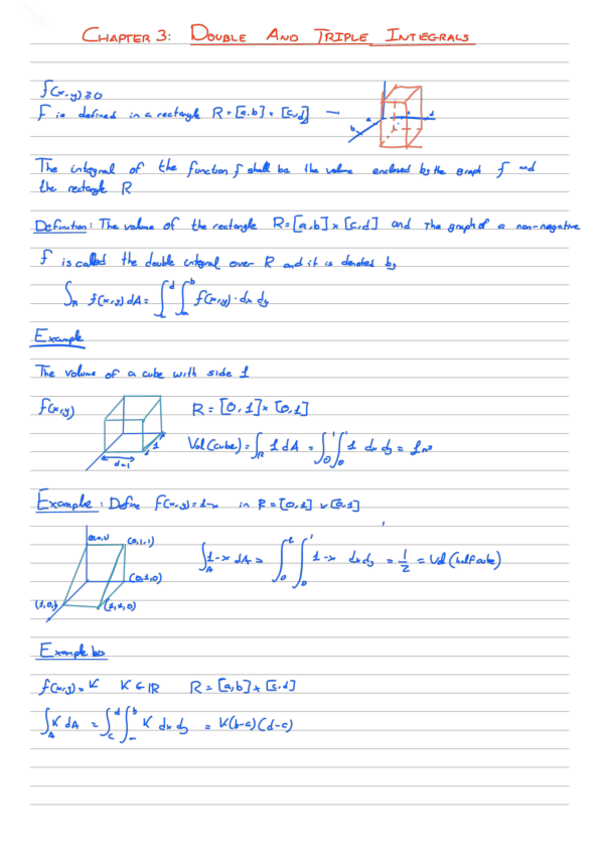 CHAPTER 3: DOUBLE AND TRIPLE INTEGRALS
f(x,y) ≥ 0
F is defined in a rectangle R = [a,b] × [c,d] →
The integral of the function f shall be the volume enclosed by the graph f and
the rectangle R
Definition: The volume of the rectangle R = [a,b] × [c,d] and the graph of a non-negative
f is called the double integral over R and it is denoted by
∫_R f(x,y) dA = ∫_c^d ∫_a^b f(x,y) · dx dy
Example
The volume of a cube with side 1
f(x,y) R = [0,1] × [0,1]
Vol(cube) = ∫_R 1 dA = ∫_0^1 ∫_0^1 1 dx dy =
d=1 1
Example: Define f(x,y) = 1-x in R = [0,1] × [0,1]
(0,1,1)
∫_A 1-x dA = ∫_0^1 ∫_0^1 1-x dx dy = 1/2 = Vol(half cube)
(0,1,0)
(1,1,0)
Example
f(x,y) = K K ∈ IR R = [a,b] × [c,d]
∫_A K dA = ∫_c^d ∫^b K dx dy = K(b-a)(d-c)